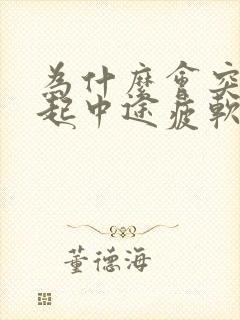 為什麼會突
起中途疲軟
董德海